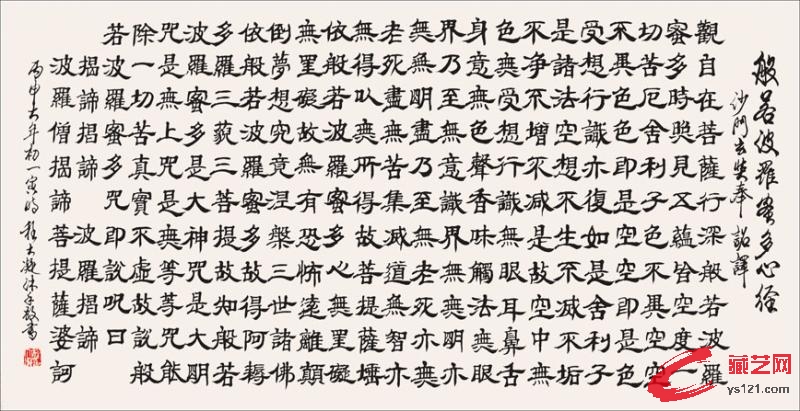 般若波羅蜜多心經
沙門玄奘奉詔譯
觀自在菩薩行深般若波羅
蜜多時照見五蘊皆空度一
切苦厄舍利子色不異空空
不異色色即是空空即是色
受想行識亦復如是舍利子
是諸法空想不生不滅不垢
不淨不增不減是故空中無
色無受想行識無眼耳鼻舌
身意無色聲香味觸法無眼
界乃至無意識界無無明亦
無無明盡乃至無老死亦無
老死盡無苦集滅道無智亦
無得以無所得故菩提薩埵
依般若波羅蜜多心無罣礙
無罣礙故無有恐怖遠離顛
倒夢想究竟涅槃三世諸佛
依般若波羅蜜多故得阿耨
多羅三藐三菩提故知般若
波羅蜜多是大神咒是大明
咒是無上咒是無等等咒能
除一切苦真實不虛故說般
若波羅蜜多咒即說呪曰
揭諦揭諦 波羅揭諦
波羅僧揭諦 菩提薩婆訶
丙申大年初一寅時 沐手敬書
藏艺网
ys121.com